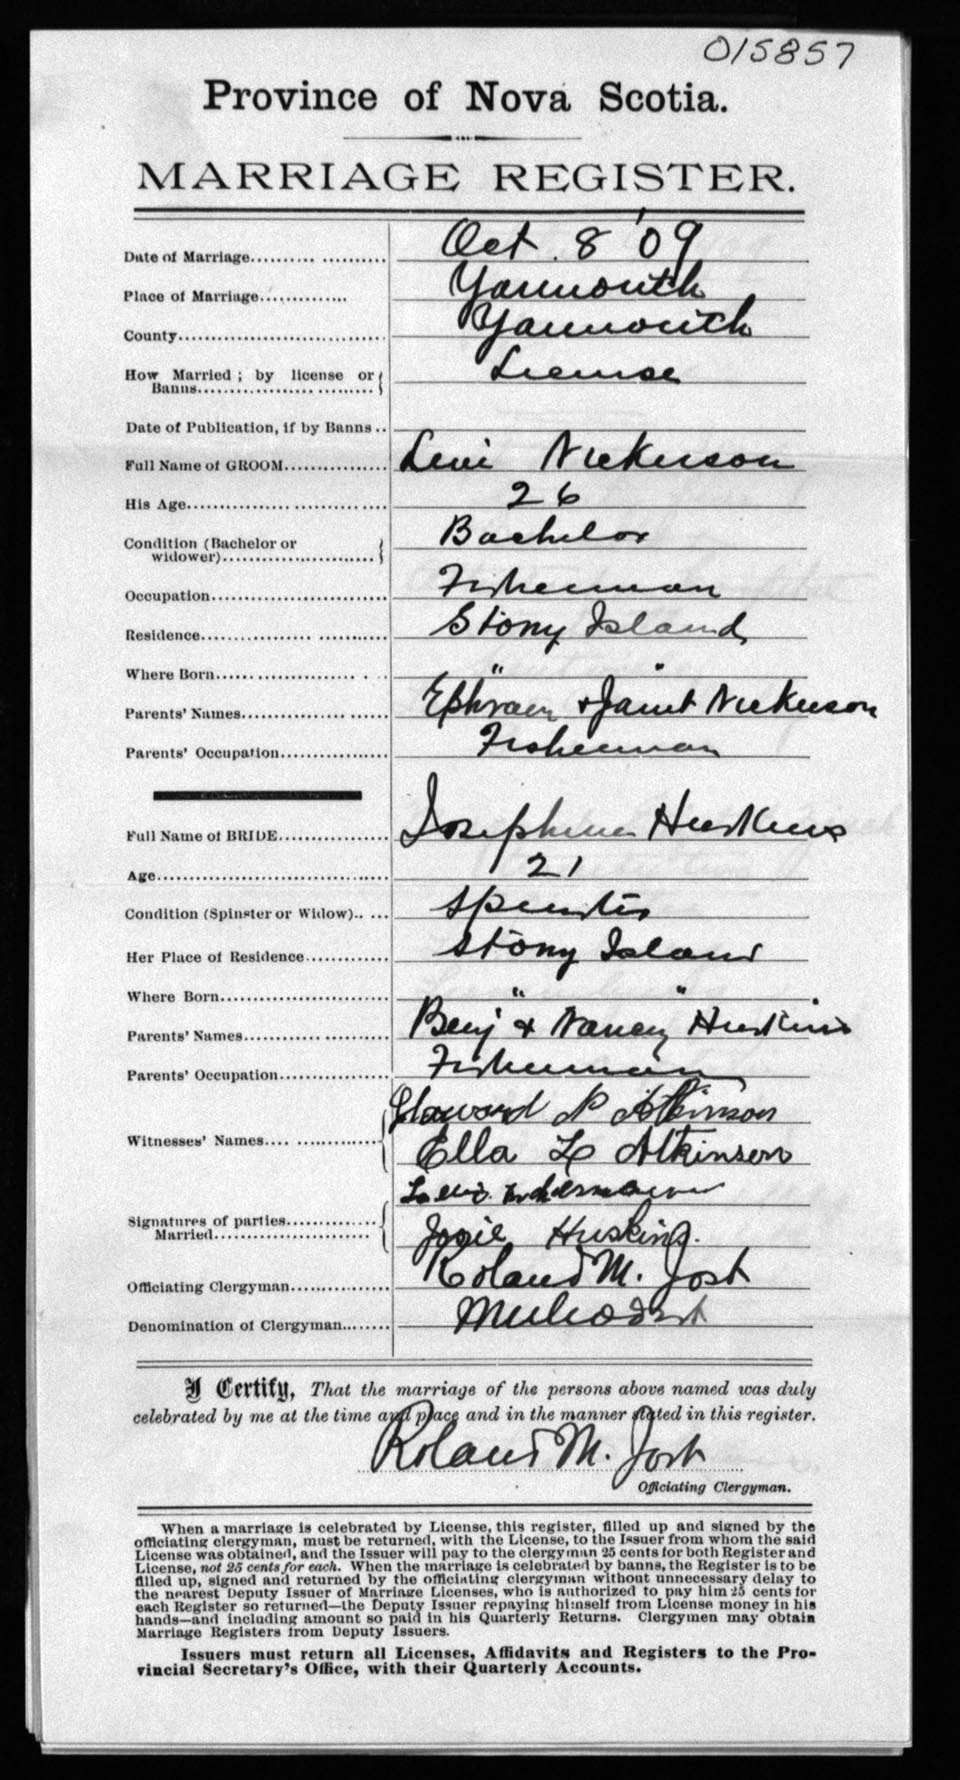 015857
Province of Nova Scotia.
MARRIAGE REGISTER.
Date of Marriage Oct. 8 '09
Place of Marriage Yarmouth
County Yarmouth
How Married; by license or Banns License
Date of Publication, if by Banns
Full Name of GROOM Levi Nickerson
His Age 26
Condition (Bachelor or widower) Bachelor
Occupation Fisherman
Residence Stony Island
Where Born " "
Parents' Names Ephraim + Janet Nickerson
Parents' Occupation Fisherman
Full Name of BRIDE Josephine Huskins
Age 21
Condition (Spinster or Widow) Spinster
Her Place of Residence Stony Island
Where Born " "
Parents' Names Benj & Nancy Huskins
Parents' Occupation Fisherman
Witnesses' Names Howard N Atkinson
Ella L Atkinson
Signatures of parties Married
Josie Huskins.
Officiating Clergyman Roland M. Jost
Denomination of Clergyman Methodist
I Certify, That the marriage of the persons above named was duly
celebrated by me at the time and place and in the manner stated in this register.
Roland M. Jost
Officiating Clergyman.
When a marriage is celebrated by License, this register, filled up and signed by the
officiating clergyman, must be returned, with the License, to the Issuer from whom the said
License was obtained, and the Issuer will pay to the clergyman 25 cents for both Register and
License, not 25 cents for each. When the marriage is celebrated by banns, the Register is to be
filled up, signed and returned by the officiating clergyman without unnecessary delay to
the nearest Deputy Issuer of Marriage Licenses, who is authorized to pay him 25 cents for
each Register so returned—the Deputy Issuer repaying himself from License money in his
hands—and including amount so paid in his Quarterly Returns. Clergymen may obtain
Marriage Registers from Deputy Issuers.
Issuers must return all Licenses, Affidavits and Registers to the Pro-
vincial Secretary's Office, with their Quarterly Accounts.